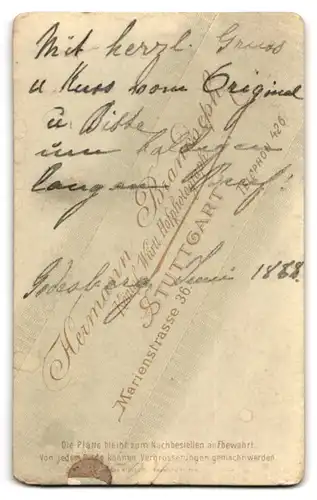 Mit herzl. Gruss
u Kuss vom Original
u Bitte
um
langen Brief!
Godesberg, Juni 1888.
Hermann Brandseph
Königl. Württ. Hofphotograph
STUTTGART
Marienstrasse 36.
TELEPHON 426.
Die Platte bleibt zum Nachbestellen aufbewahrt.
Von jedem Bilde können Vergrösserungen gemacht werden.